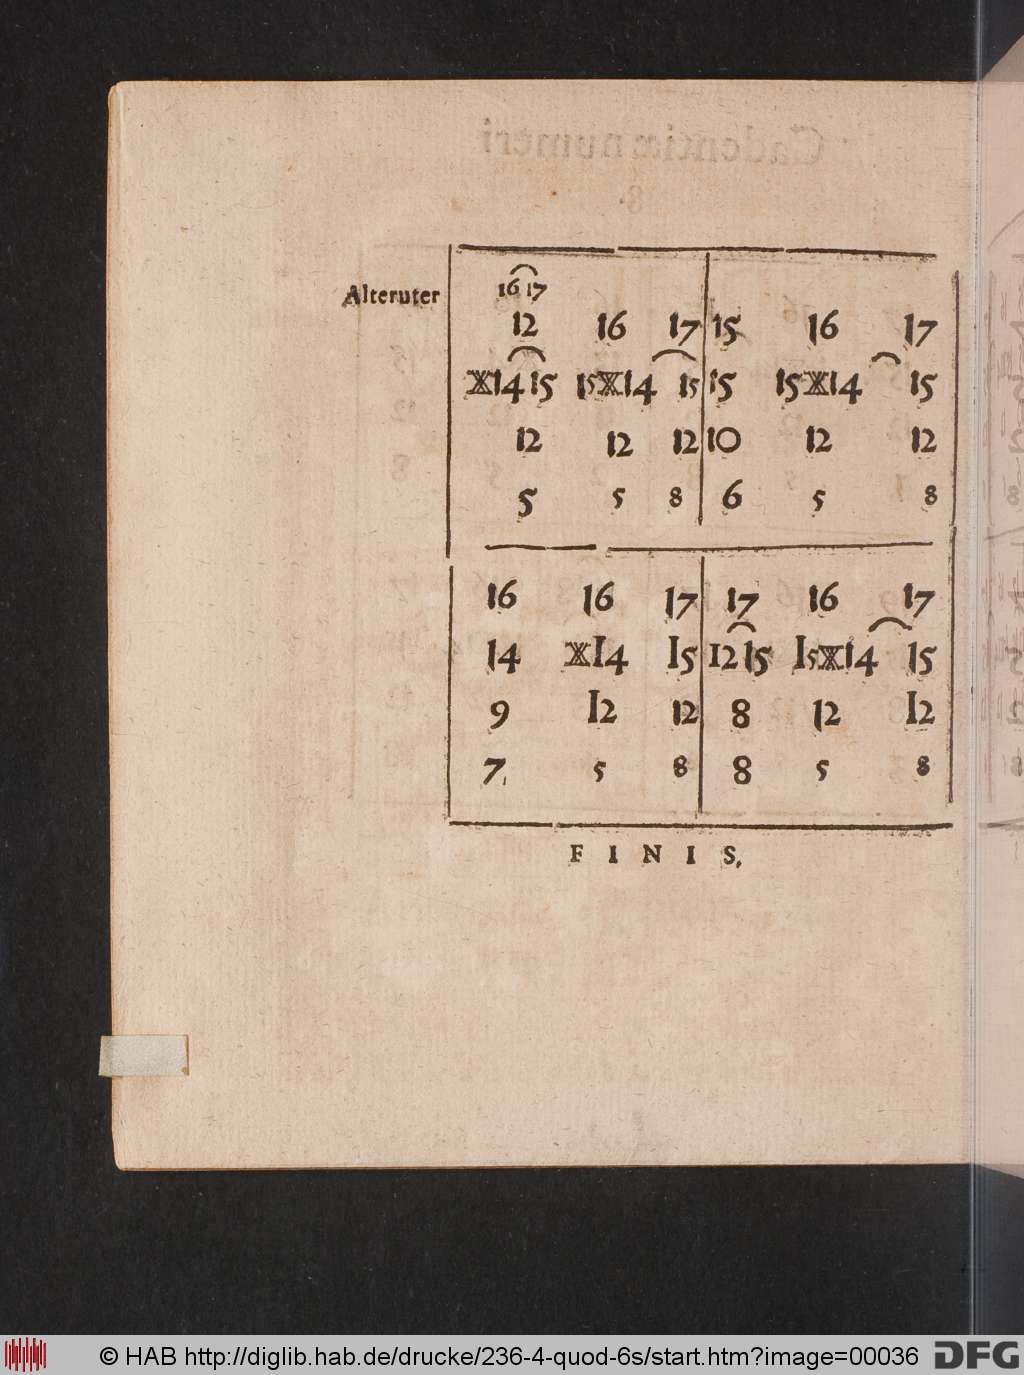 Cadentiæ numeri
8
16 17
Alteruter
12 16 17 15 16 17
X14 15 15X14 15 15 15X14 15
12 12 12 10 12 12
5 5 8 6 5 8
16 16 17 17 16 17
14 XI4 I5 I2 15 I5X14 15
9 I2 12 8 12 I2
7 5 8 8 5 8
F I N I S,
© HAB http://diglib.hab.de/drucke/236-4-quod-6s/start.htm?image=00036 DFG